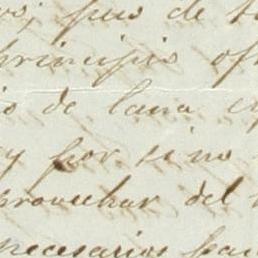 pues de
principio of
de lana
y por sino
provechar del
necesarios pa